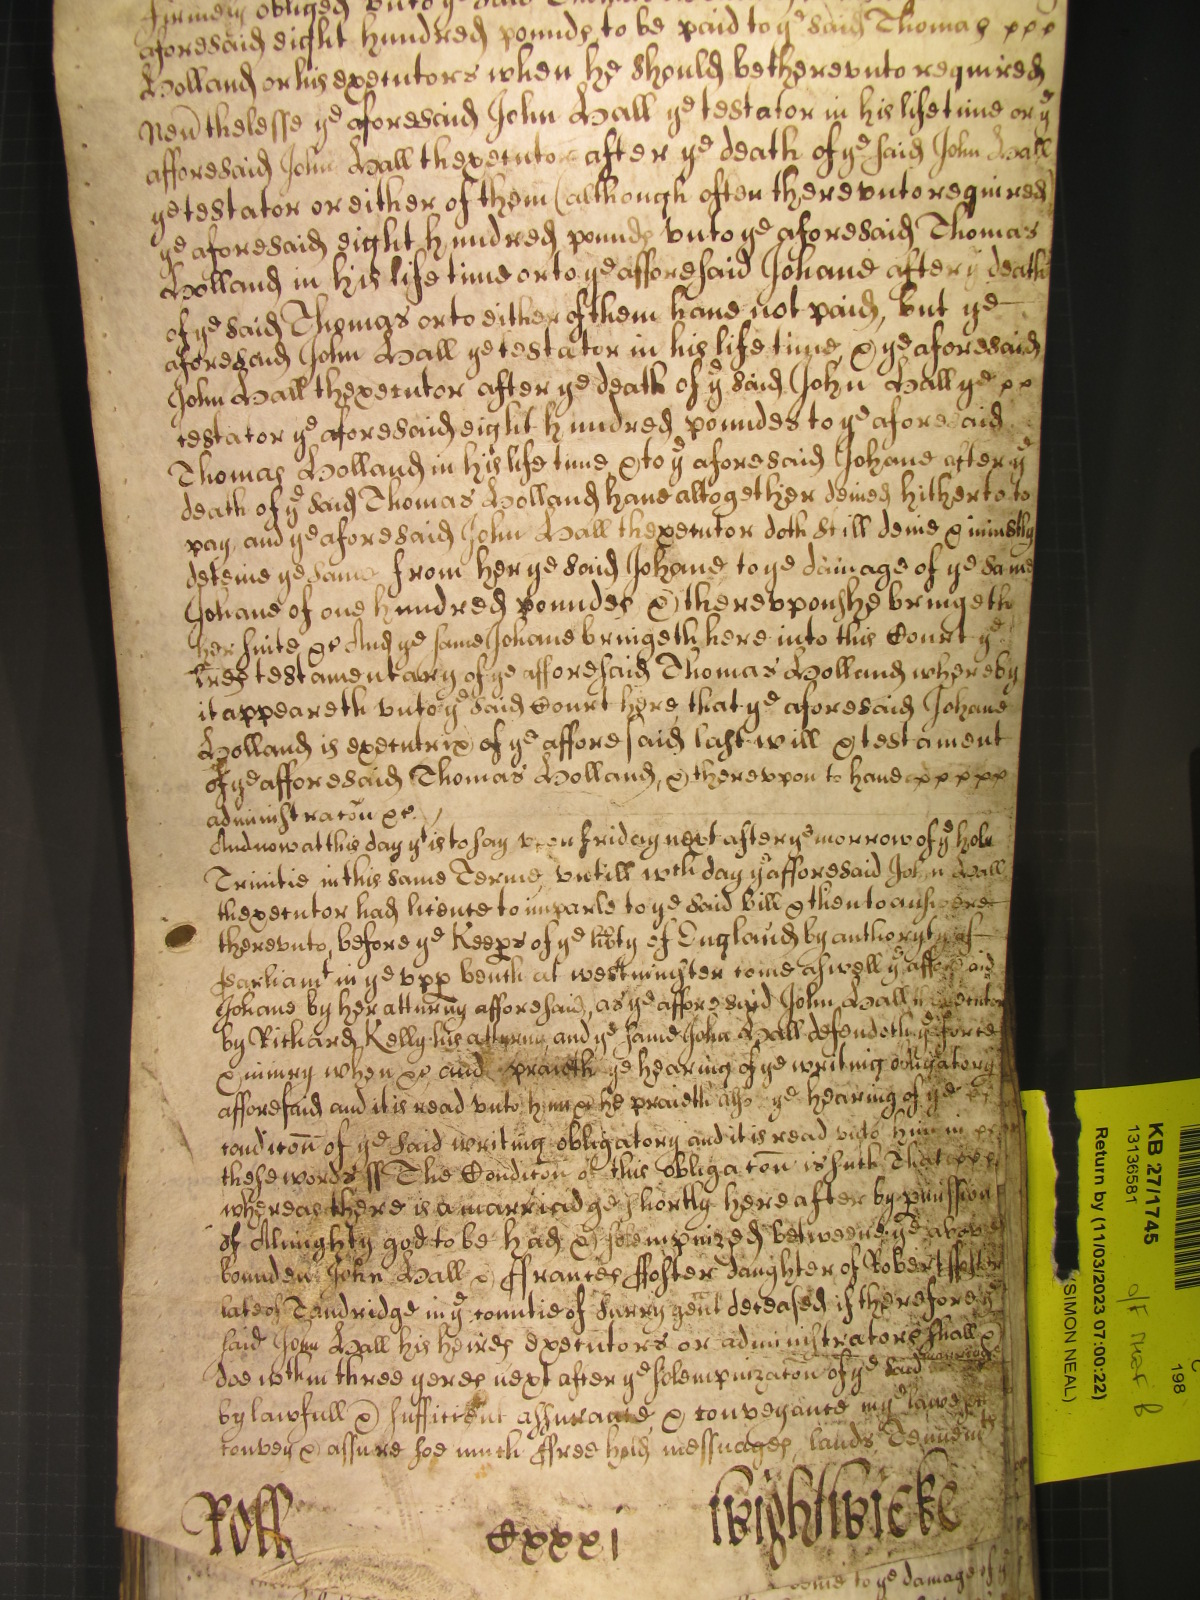 firmely obliged vnto ye said Thomas
aforesaid eight hundred pounds to be paid to ye said Thomas xxx
Holland or his executors when he should be therevnto required
Neũthelesse ye aforesaid John Hall ye testator in his life time or ye
afforesaid John Hall thexecutor after ye death of ye said John Hall
ye testator or either of them (although often therevnto required)
ye aforesaid eight hundred pounds vnto ye aforesaid Thomas
Holland in his life time or to ye afforesaid Johane after ye death
of ye said Thomas or to either of them haue not paid, but ye
aforesaid John Hall ye testator in his life time & ye aforesaid
John Hall thexecutor after ye death of ye said John Hall ye xx
testator ye aforesaid eight hundred poundes to ye aforesaid
Thomas Holland in his life time & to ye aforesaid Johane after ye
death of ye said Thomas Holland haue altogether denied hitherto to
pay, and ye aforesaid John Hall thexecutor doth still denie & iniustly
deteine ye same from her ye said Johane to ye damage of ye same
Johane of one hundred poundes & therevpon she bringeth
her suite &c And ye same Johane bringeth here into this Court ye
lr̃es testamentary of ye afforesaid Thomas Holland whereby
it appeareth vnto ye said Court here that ye aforesaid Johane
Holland is executrix of ye afforesaid last will & testament
of ye afforesaid Thomas Holland, & therevpon to haue xxxxx
administracõn &c.
And now at this day yt is to say vpon Friday next after ye morrow of ye holie
Trinitie in this same Terme, vntill wch day ye afforesaid John Hall
thexecutor had licence to imparle to ye said bill & then to answere
therevnto, before ye Keep̱s of ye lib̃ty of England by authoryty of
Parliamt in ye vpp̱ bench at westminster come aswell ye afforesaid
Johane by her atturny afforesaid, as ye afforesaid John Hall thexecutor
by Richard Kelly his atturny and ye same John Hall defendeth ye force
& iniury when &c and praieth ye hearing of ye writing obligatory
afforesaid and it is read vnto him & he praieth also ye hearing of ye
condicõn of ye said writing obligatory and it is read vnto him in xx
these words ss The Condicõn of this obligacõn is such That xxx
whereas there is a marriadge shortly hereafter by p̱mission
of Almighty god to be had & solempnized betweene ye aboue
bounden John Hall & ffrances ffoster daughter of Robert ffoster
late of Tandridge in ye countie of Surry gent deceased if therefore ye
said John Hall his heires executors or administrators shall &
doe wthin three yeres next after ye solempnizacõn of ye said marriadge
by lawfull & sufficient assurance & conveyance in ye lawe
convey & assure soe much ffree hold messuages, lands, Tenemts
Roll Cxxxi Wightwicke
come to ye damage of ye
KB 27/1745
13136581
Return by (11/03/2023 07:00:22)
(SIMON NEAL)
198